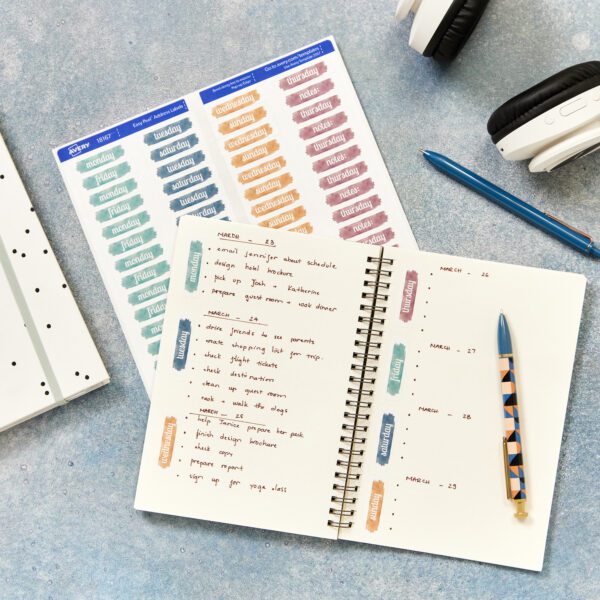 AVERY
18167
Easy Peel® Address Labels
Go to avery.com/templates
monday
friday
monday
friday
monday
friday
monday
friday
monday
friday
monday
tuesday
saturday
tuesday
saturday
tuesday
saturday
wednesday
sunday
wednesday
sunday
wednesday
sunday
wednesday
sunday
wednesday
thursday
notes:
thursday
notes:
thursday
notes:
thursday
notes:
thursday
notes:
thursday
MARCH - 23
monday
• email jennifer about schedule
• design hotel brochure
• pick up Josh + Katherine
• prepare guest room + cook dinner
MARCH - 24
tuesday
• drive friends to see parents
• make shopping list for trip.
• check flight tickets
• check destination
• clean up guest room
• cook + walk the dogs
MARCH - 25
wednesday
• help Janice prepare her pack
• finish design brochure
• check copy
• prepare report
• sign up for yoga class
MARCH - 26
thursday
MARCH - 27
friday
MARCH - 28
saturday
MARCH - 29
sunday